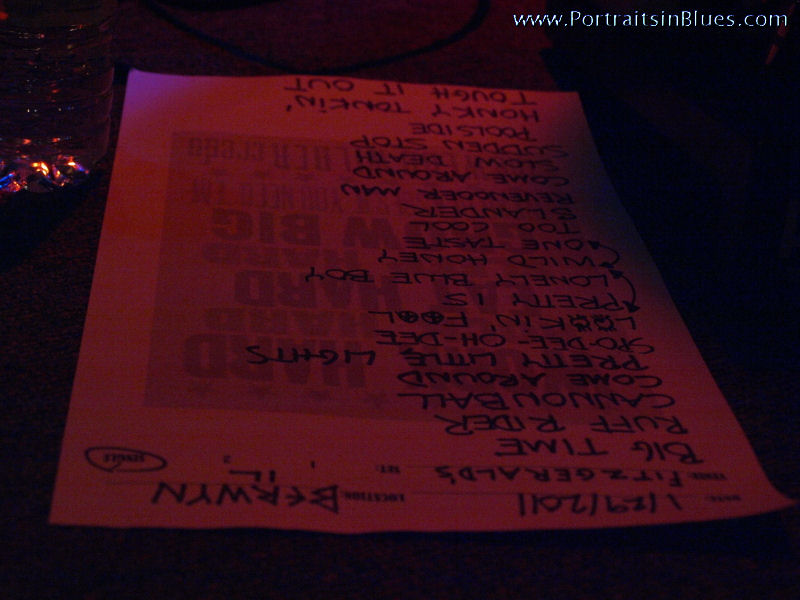 www.PortraitsinBlues.com
DATE: 1/29/2011 LOCATION: BERWYN IL
VENUE: FITZGERALD'S SET: 1 2 SINGLE
BIG TIME
RUFF RIDER
CANNONBALL
COME AROUND
PRETTY LITTLE LIGHTS
SPO-DEE-OH-DEE
LOOKIN' FOOL
PRETTY IS
LONELY BLUE BOY
WILD HONEY
ONE TASTE
TOO COOL
SLANDER
REVENOOER MAN
COME AROUND
SLOW DEATH
SUDDEN STOP
POOLSIDE
HONKY TONKIN'
TOUGH IT OUT
HARD
HARD
HARD
HARD
W BIG
YOU NEED I'M